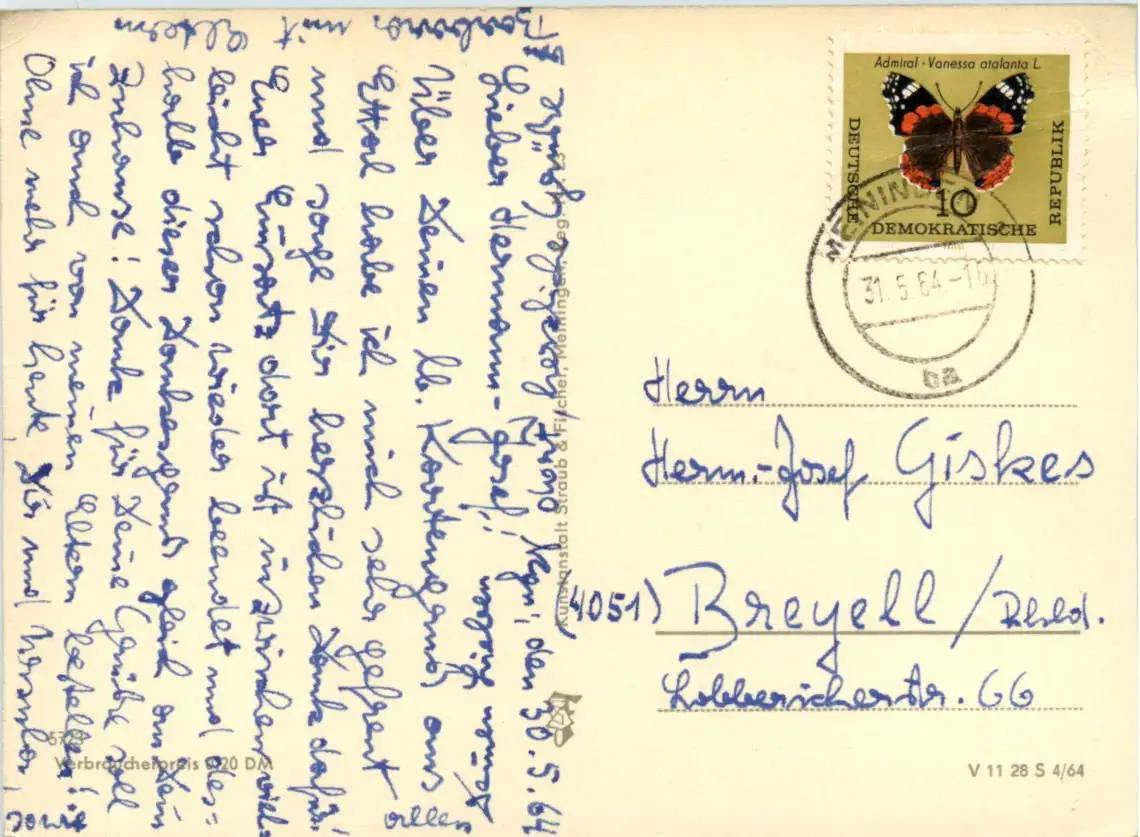 Mgn, den 30.5.64
Lieber Hermann-Josef!
Über Deinen lb. Kartengruß aus
Ettal habe ich mich sehr gefreut
und sage Dir herzlichen Dank dafür.
Euer Einsatz dort ist inzwischen viel-
leicht schon wieder beendet und des-
halb dieser Dankesgruß gleich an Dein
Zuhause! Dank für Deine Grüße soll
ich auch von meinen Eltern bestellen!
Ohne mehr für heute Dir und
sowie
Eltern
mit
Barbara
allen
Admiral · Vanessa atalanta L.
DEUTSCHE
DEMOKRATISCHE
REPUBLIK
10
MEININGEN
31.5.64.-16
ba
Herrn
Herm.-Josef Giskes
(4051) Breyell / Rhld.
Lobbericherstr. 66
Kunstanstalt Straub & Fischer, Meiningen,
Verbraucherpreis 0,20 DM
V 11 28 S 4/64